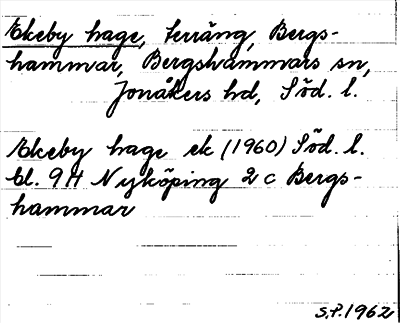 Ekeby hage, terräng, Bergs-
hammar, Bergshammars sn,
Jonåkers hd, Söd. l.
Ekeby hage ek (1960) Söd. l.
bl. 9H Nyköping 2 c Bergs-
hammar
S.P. 1962